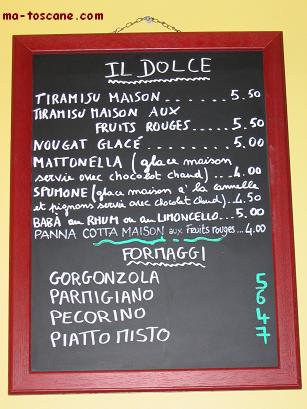 ma-toscane.com
IL DOLCE
TIRAMISU MAISON....... 5.50
TIRAMISU MAISON AUX
FRUITS ROUGES.....5.50
NOUGAT GLACÉ........ 5.00
MATTONELLA (glace maison
servie avec chocolat chaud)...4.00
SPUMONE (glace maison à la cannelle
et pignons servie avec chocolat chaud).4.50
BABÀ au RHUM ou au LIMONCELLO...5.00
PANNA COTTA MAISON aux fruits rouges...4.00
FORMAGGI
GORGONZOLA 5
PARMIGIANO 6
PECORINO 4
PIATTO MISTO 7